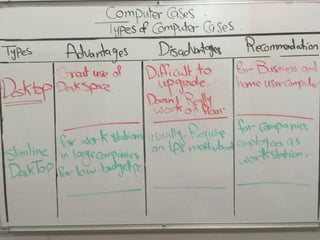 Computer Cases
Types of Computer Cases.
Types
Advantages
Disadvantages
Recommodation
Desktop
Great use of
Desk space
Difficult to
upgrade.
Doesn't Really
work on floor
for Business and
home user computer
Slimline
DeskTop
for work stations
in large companies
for low budget pc
usually Require
an LPX motherboard
for companies
employees as
workstation.